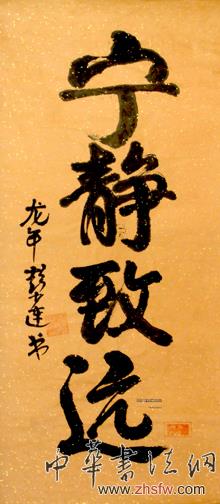 宁静致远
龙年彭少连书
中華書法网
www.zhsfw.com